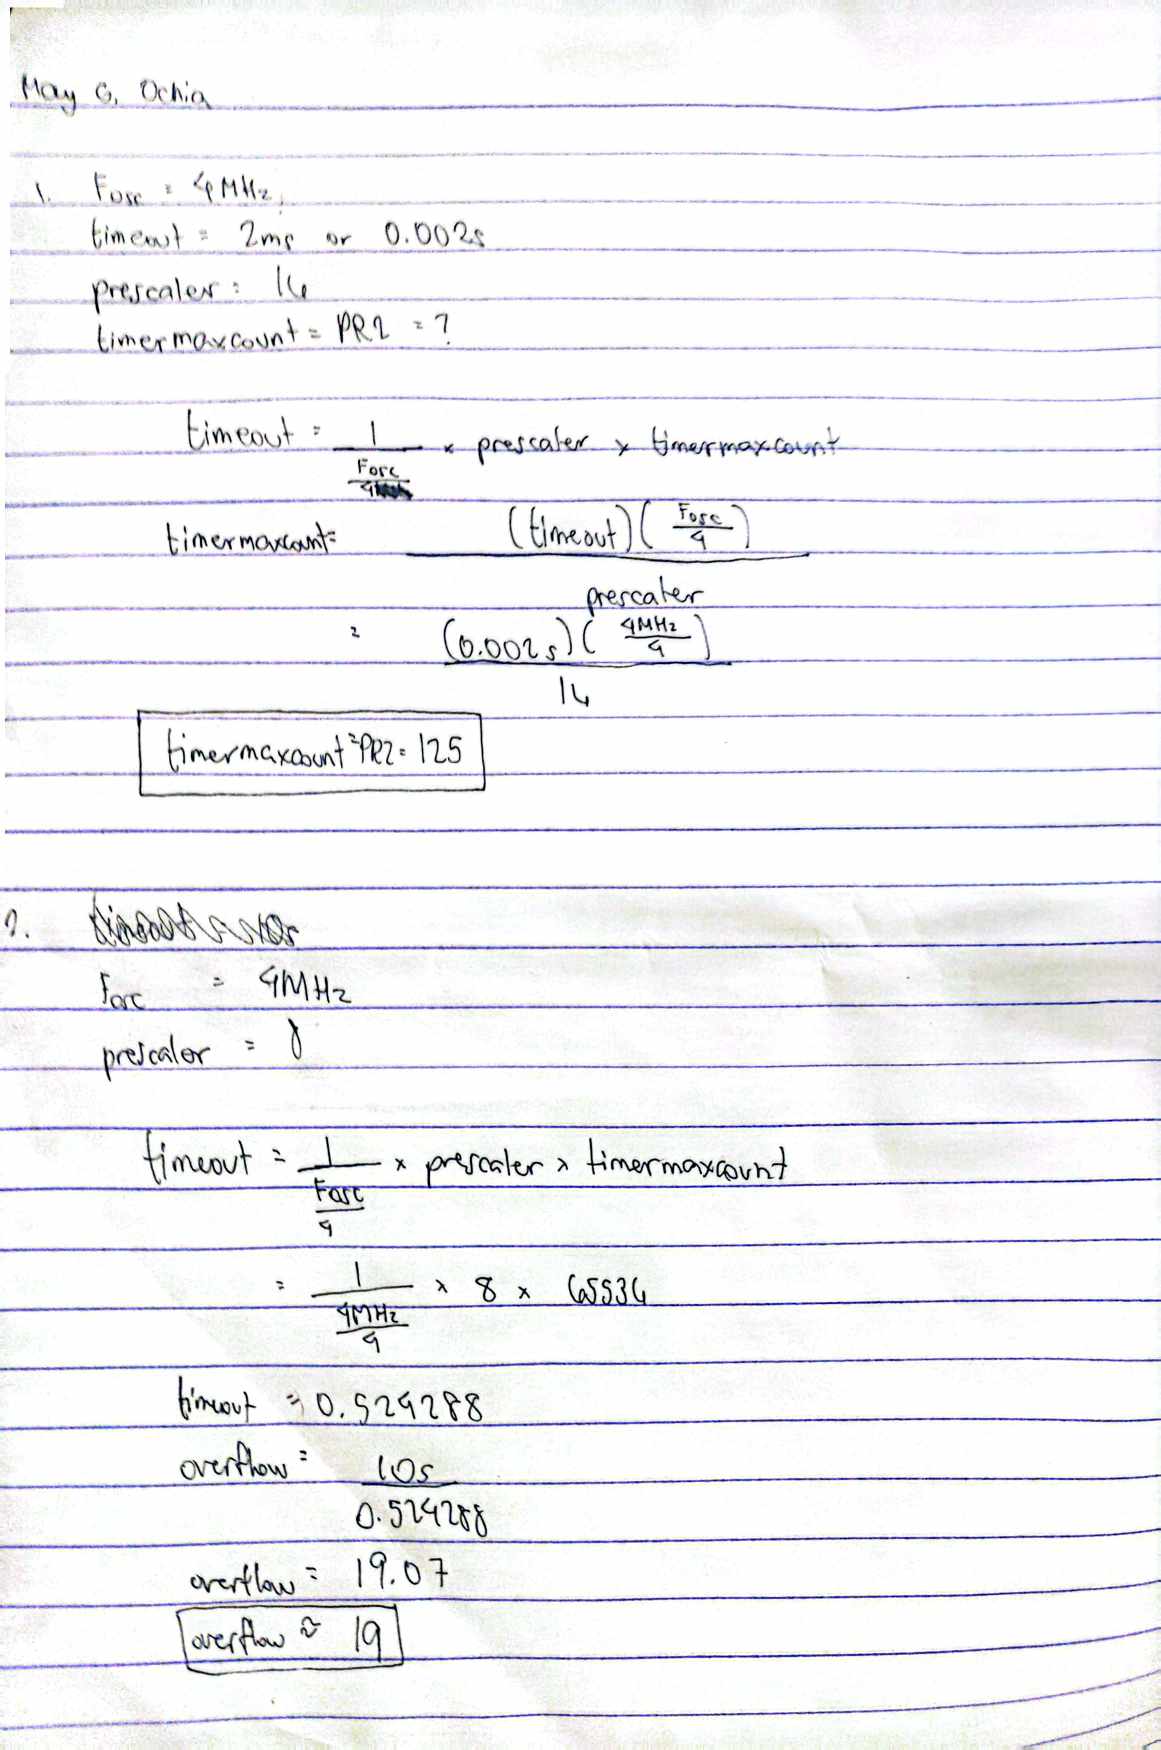 May G. Ochia
1. Fosc = 4MHz,
timeout = 2ms or 0.002s
prescaler = 16
timermaxcount = PR2 = ?
timeout = 1 / (Fosc / 4) × prescaler × timermaxcount
timermaxcount = (timeout)(Fosc / 4) / prescaler
= (0.002s)(4MHz / 4) / 16
timermaxcount = PR2 = 125
2.
Fosc = 4MHz
prescaler = 8
timeout = 1 / (Fosc / 4) × prescaler × timermaxcount
= 1 / (4MHz / 4) × 8 × 65536
timeout = 0.524288
overflow = 10s / 0.524288
overflow = 19.07
overflow ≈ 19